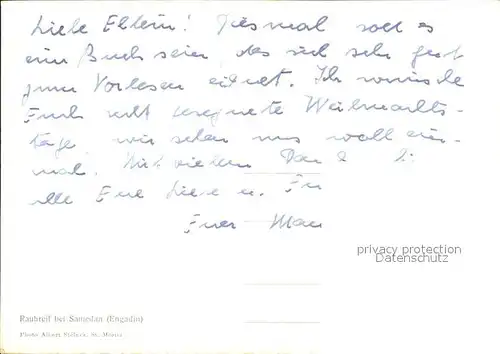 Liebe Eltern! Diesmal soll es
ein Buch sein, das sich sehr gut
zum Vorlesen eignet. Ich wünsche
Euch recht gesegnete Weihnachts-
tage, wir sehen uns wohl ein-
mal. Mit vielem Dan
alle Eure Liebe u.
Euer
privacy protection
Ansichtskarten-Center
Rauhreif bei Samedan (Engadin)
Photo Albert Steiner, St. Moritz